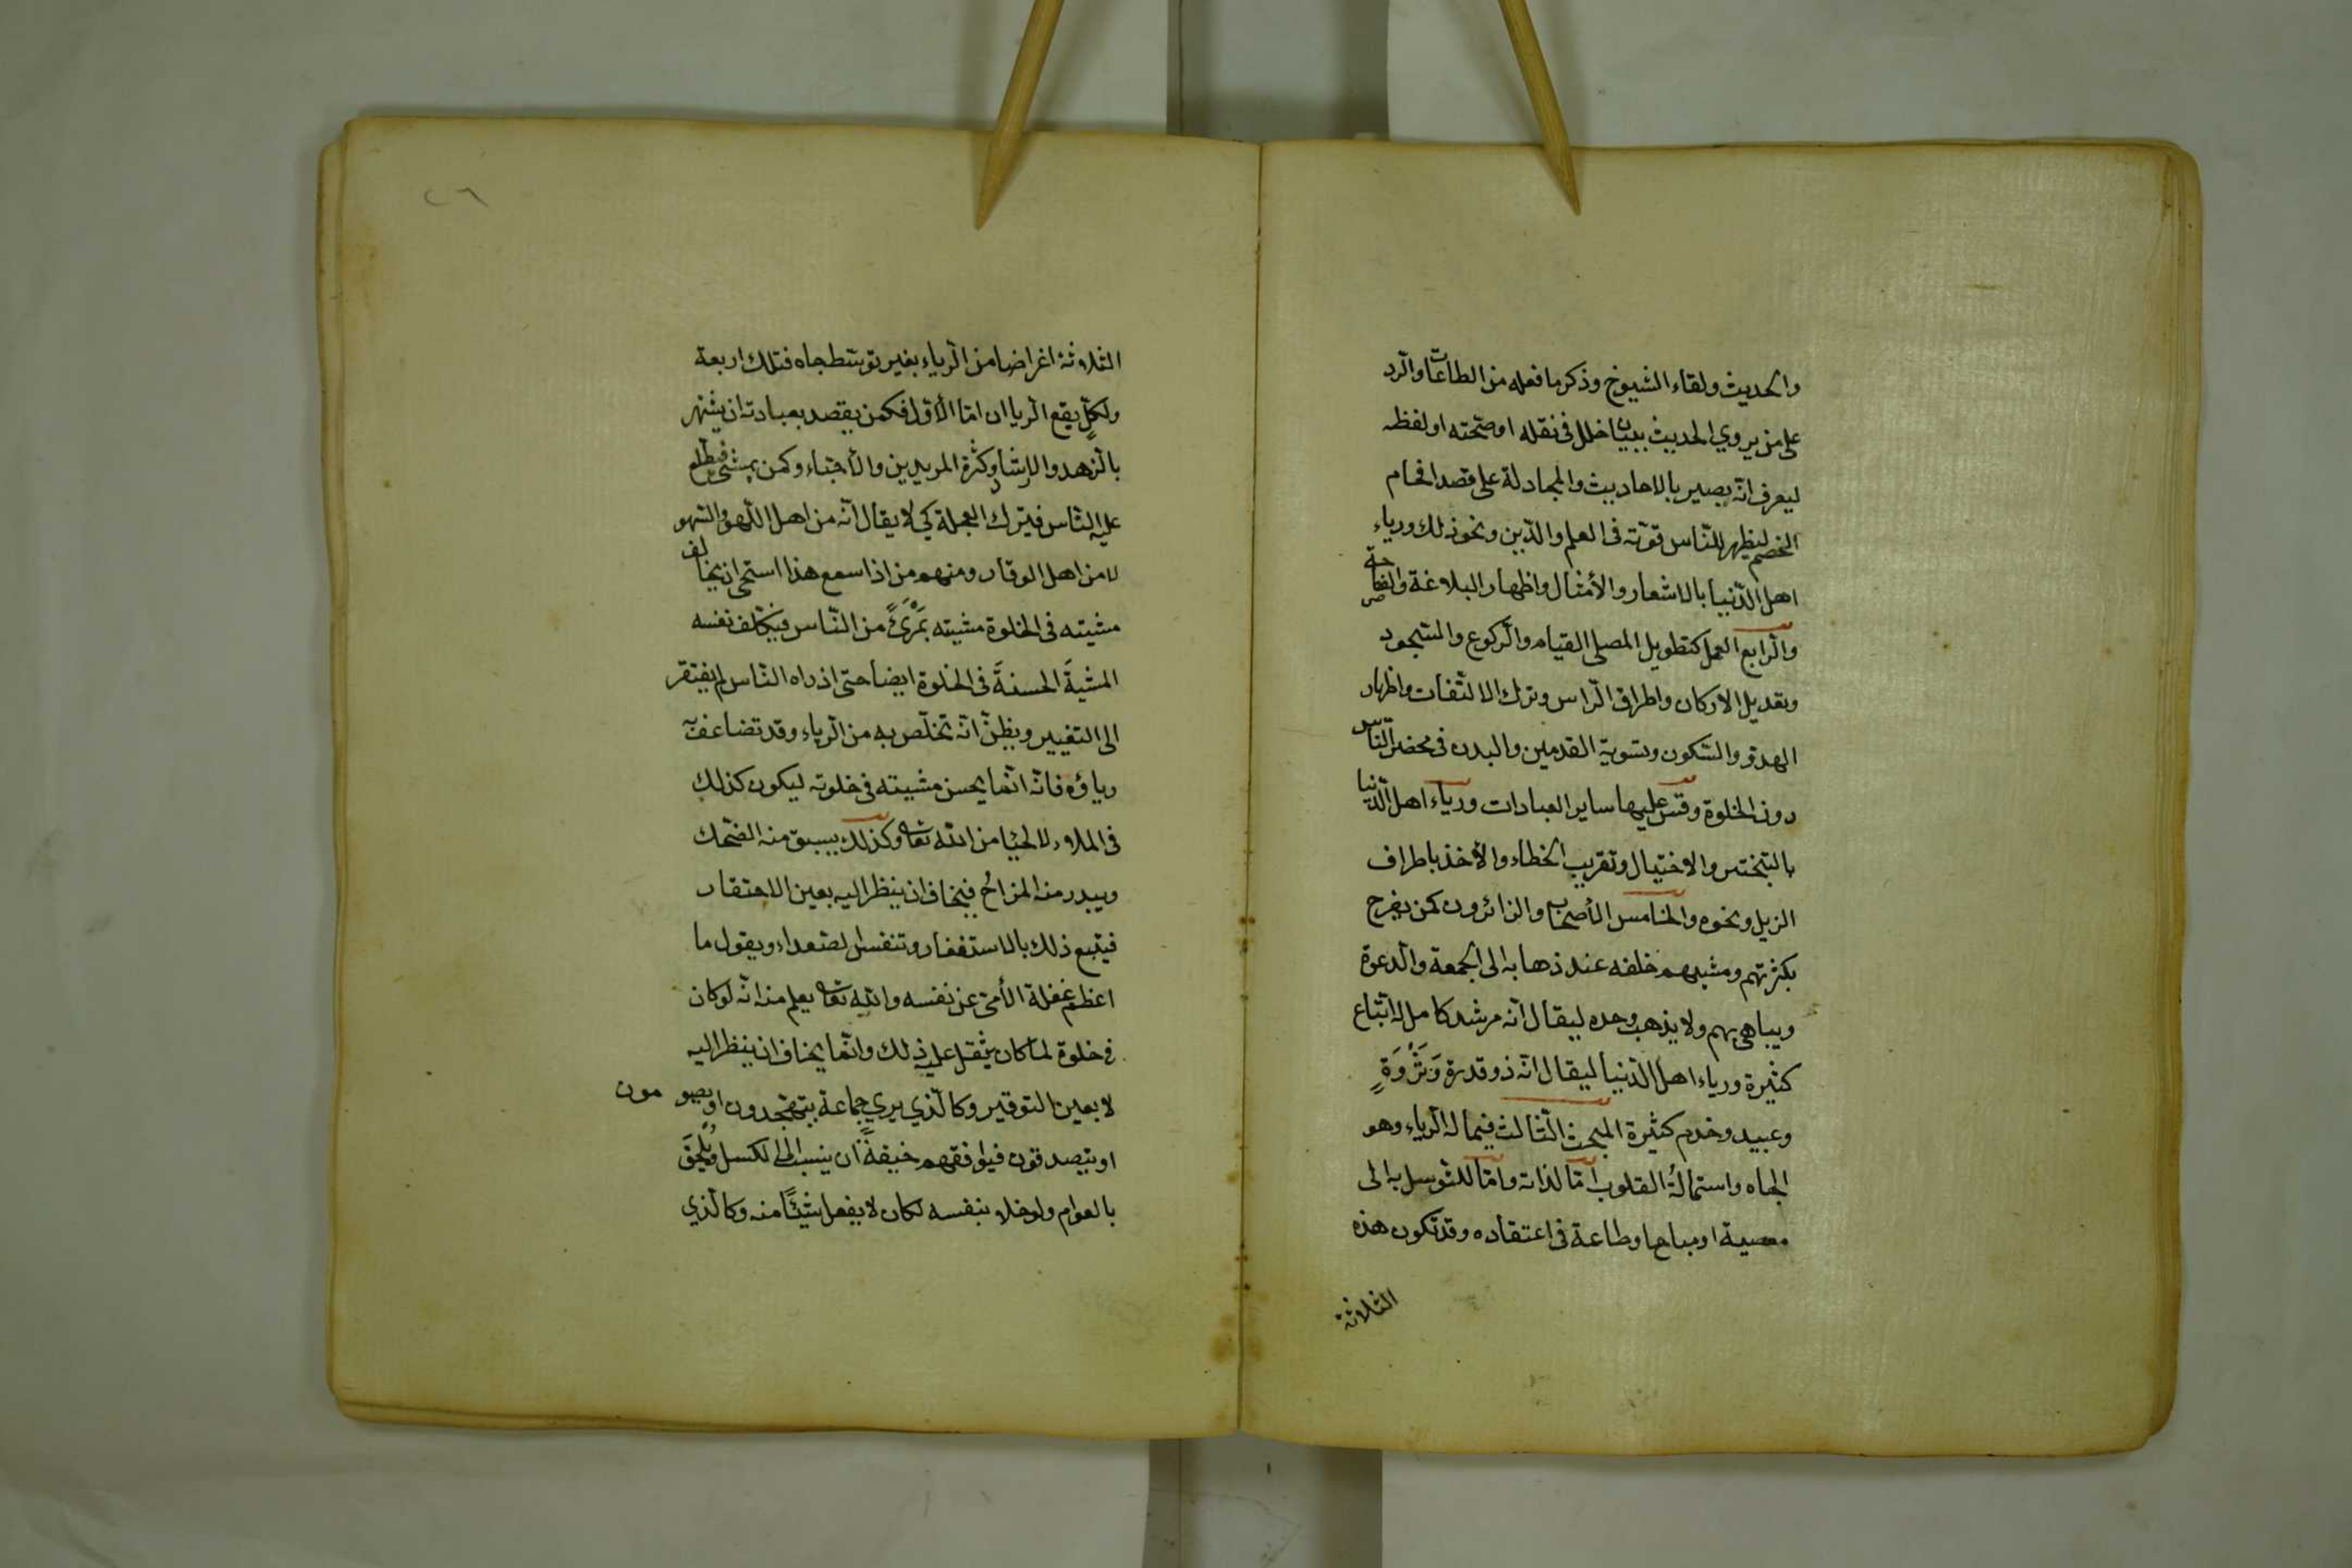 والحديث ولقاء الشيوخ وذكر ما فعله من الطاعات والرد
على من يروي الحديث ببيان خلل في نقله او صحته او لفظه
ليعرف انه بصير بالاحاديث والمجادلة على قصد افحام
الخصم ليظهر للناس قوته في العلم والدين ونحو ذلك ورياء
اهل الدنيا بالاشعار والأمثال واظهار البلاغة والفصاحة
والرابع العمل كتطويل المصلى القيام والركوع والسجود
وتعديل الاركان واطراق الراس وترك الالتفات واظهار
الهدو والسكون وتسوية القدمين والبدن في محضر الناس
دون الخلوة وقس عليها ساير العبادات ورياء اهل الدنيا
بالتبختر والاختيال وتقريب الخطاء والأخذ باطراف
الزيل ونحوه والخامس الأصحاب والزائرون كمن يفرح
بكثرتهم ومشيهم خلفه عند ذهابه الى الجمعة والدعوة
ويباهى بهم ولا يذهب وحده ليقال انه مرشد كامل له اتباع
كثيرة ورياء اهل الدنيا ليقال انه ذو قدرة وَثَرْوَةٍ
وعبيد وخدم كثيرة المبحث الثالث فيما له الرياء وهو
الجاه واستمالةُ القلوب امّا لذاته وامّا للتوسل به الى
معصية او مباح اوطاعة في اعتقاده وقد تكون هذه
الثلاثة
٢٦
الثلاثة اغراضا من الرياء بغير توسط جاه فتلك اربعة
ولكلٍ يقع الرياان امّا الأول فكمن يقصد بعبادته ان يشتهر
بالزهد والارشاد وكثرة المريدين والأحباء وكمن يمشى فيطلع
عليه الناس فيترك العجلة كي لا يقال انه من اهل اللهو والسهو
لا من اهل الوقار ومنهم من اذا سمع هذا استحى ان يخالف
مشيته في الخلوة مشيته بمَرْئً من الناس فيكلف نفسه
المشيةَ الحسنةَ في الخلوة ايضا حتى اذ راه الناس لم يفتقر
الى التغيير ويظنّ انه تخلّص به من الرياء وقد تضاعف به
رياؤه فانه انما يحسن مشيته في خلوته ليكون كذلك
في الملاء لا لحيا من الله تعا وكذلك يسبق منه الضحك
ويبدر منه المزاح فيخاف ان ينظر اليه بعين الاحتقار
فيتبع ذلك بالاستغفار وتنفس الصعداء ويقول ما
اعظم غفلة الأمى عن نفسه والله تعا يعلم منه انه لو كان
في خلوة لما كان يثقل عليه ذلك وانما يخاف ان ينظر اليه
لا بعين التوقير وكالذي يري جماعة يتهجدون او يصومون
او يتصدقون فيوافقهم خيفةً ان ينسب الى الكسل ويُلحَقَ
بالعوام ولو خلا بنفسه لكان لا يفعل شيئًا منه وكالذي